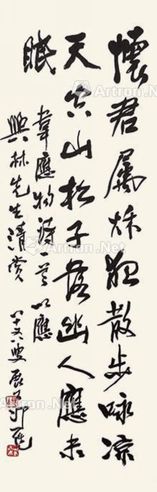 懷君屬秋夜散步咏涼
天空山松子落幽人應未
眠
韋應物詩一首以應
興林先生清赏